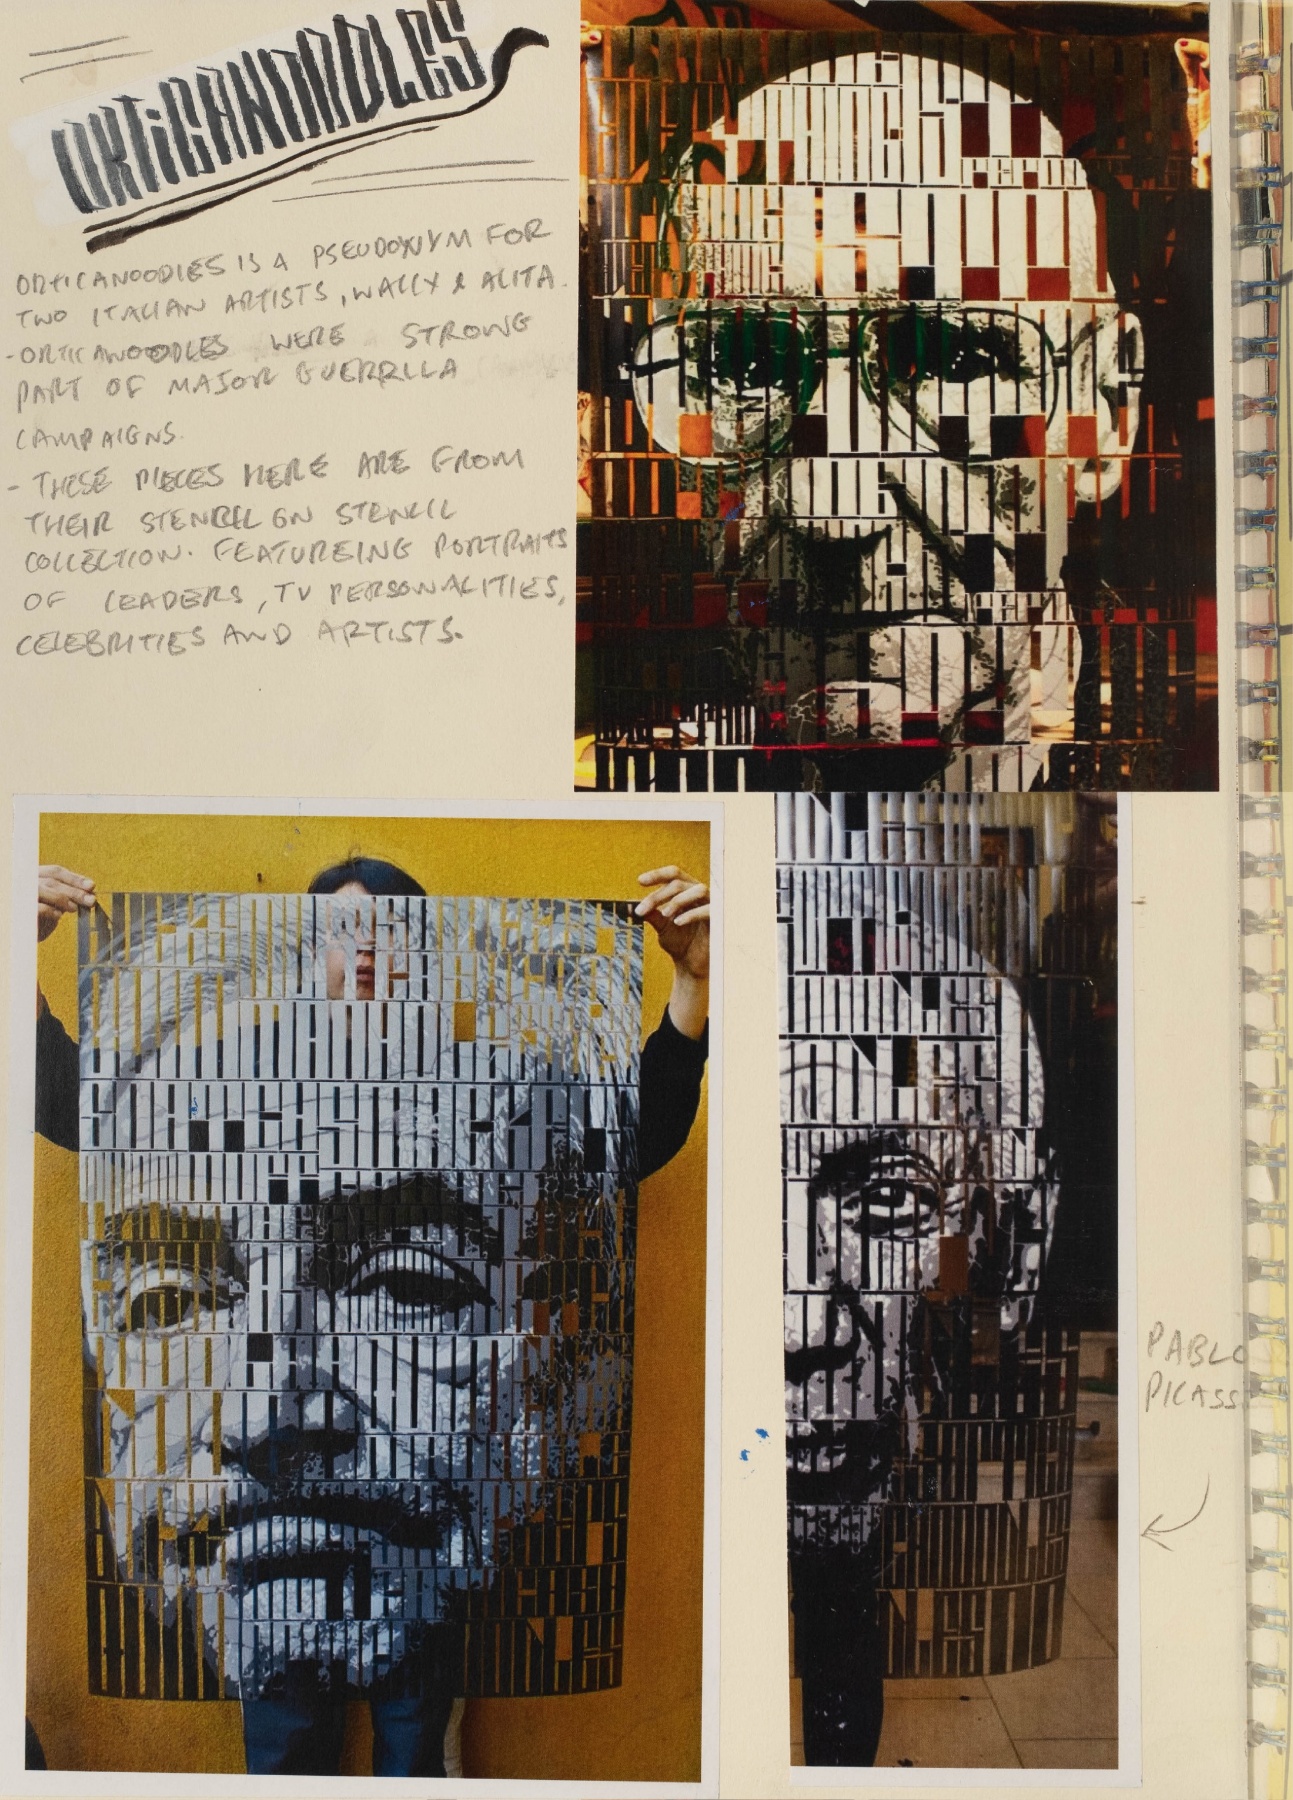 ORTiCANOODLES
ORTICANOODLES IS A PSEUDONYM FOR
TWO ITALIAN ARTISTS, WALLY & ALITA.
- ORTICANOODLES WERE STRONG
PART OF MAJOR GUERRLLA
CAMPAIGNS.
- THESE PIECES HERE ARE FROM
THEIR STENCIL ON STENCIL
COLLECTION. FEATUREING PORTRAITS
OF LEADERS, TV PERSONALITIES,
CELEBRITIES AND ARTISTS.
PABLO
PICASS